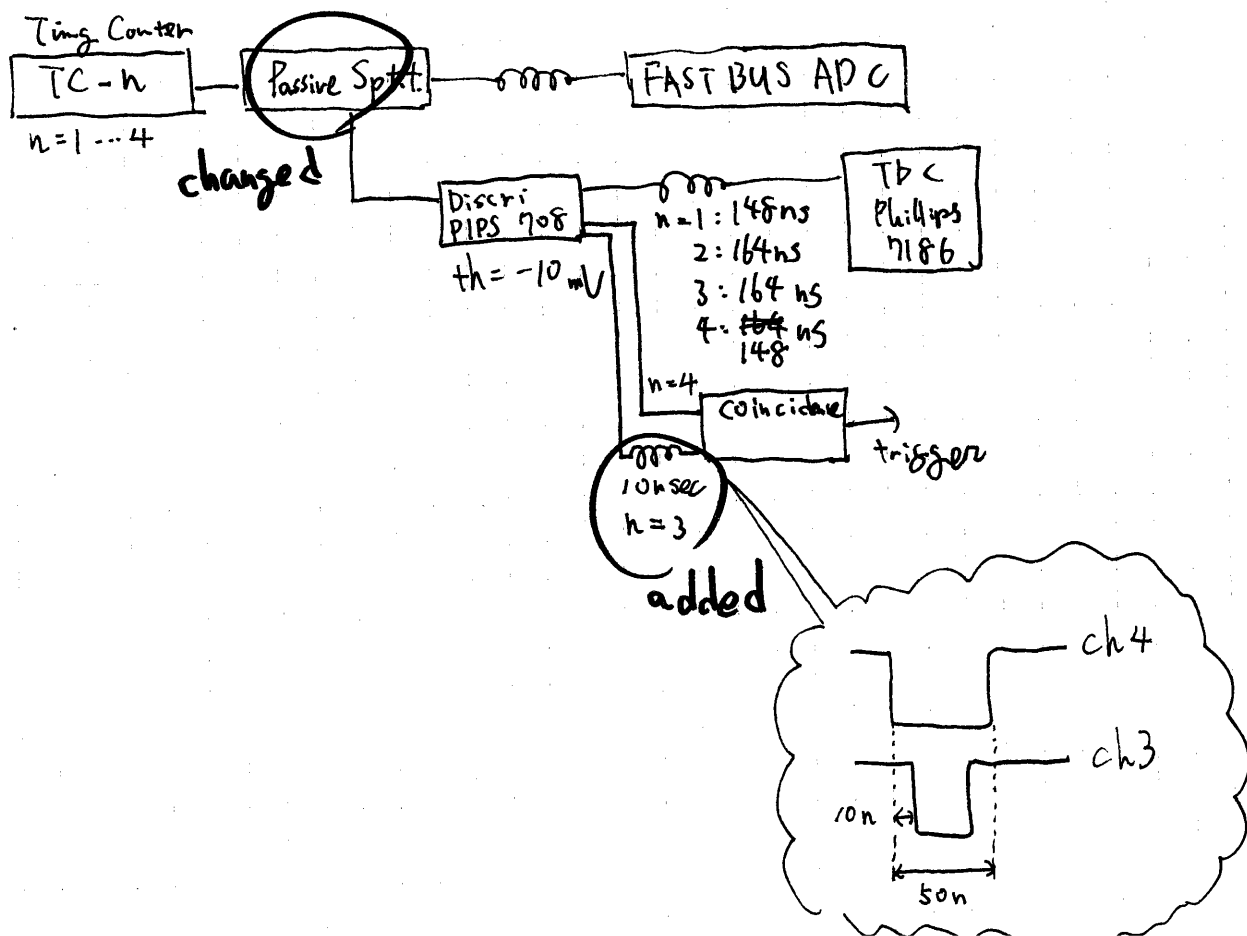 Timg Conter
TC-n
n=1...4
Passive Splt.
FAST BUS ADC
changed
Discri
PIPS 708
th = -10 mV
n=1: 148ns
2: 164ns
3: 164 ns
4: 164 ns
148
TDC
Phillips
7186
n=4
coincidence
trigger
10nsec
n=3
added
ch4
ch3
10n
50n